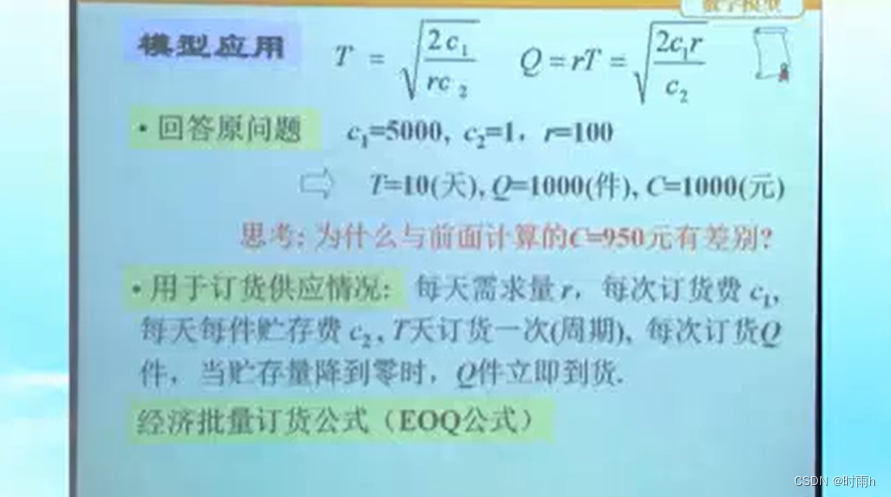 数学模型
模型应用 T = √(2c₁/rc₂) Q = rT = √(2c₁r/c₂)
• 回答原问题 c₁=5000, c₂=1, r=100
⇨ T=10(天), Q=1000(件), C=1000(元)
思考: 为什么与前面计算的C=950元有差别?
• 用于订货供应情况: 每天需求量 r, 每次订货费 c₁,
每天每件贮存费 c₂, T天订货一次(周期), 每次订货Q
件, 当贮存量降到零时, Q件立即到货.
经济批量订货公式（EOQ公式）
CSDN @时雨h